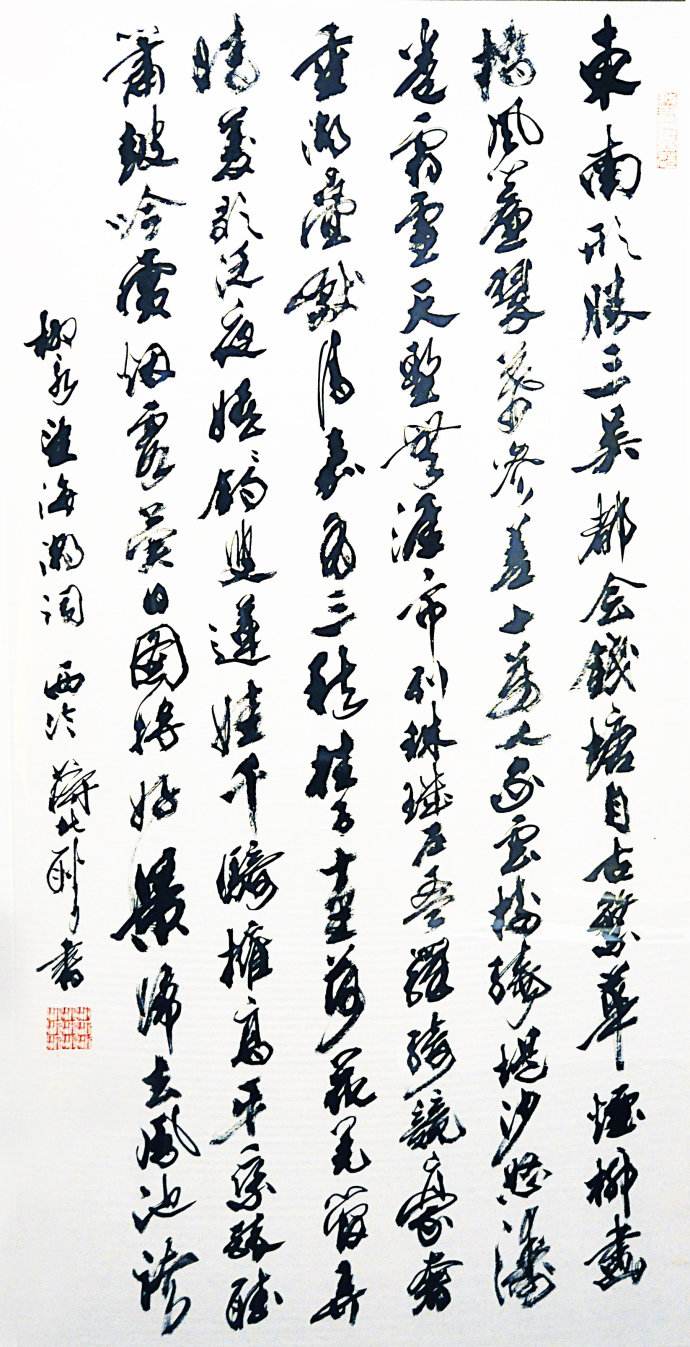 東南形勝三吳都会錢塘自古繁華煙柳畫
橋風簾翠幕參差十萬人家雲樹繞堤沙怒濤
卷霜雪天塹無涯市列珠璣戶盈羅綺競豪奢
重湖疊巘清嘉有三秋桂子十里荷花羌管弄
晴菱歌泛夜嬉嬉釣叟蓮娃千騎擁高牙乘醉聽
簫鼓吟賞烟霞異日圖將好景歸去鳳池誇
柳永望海潮詞 西泠薛書